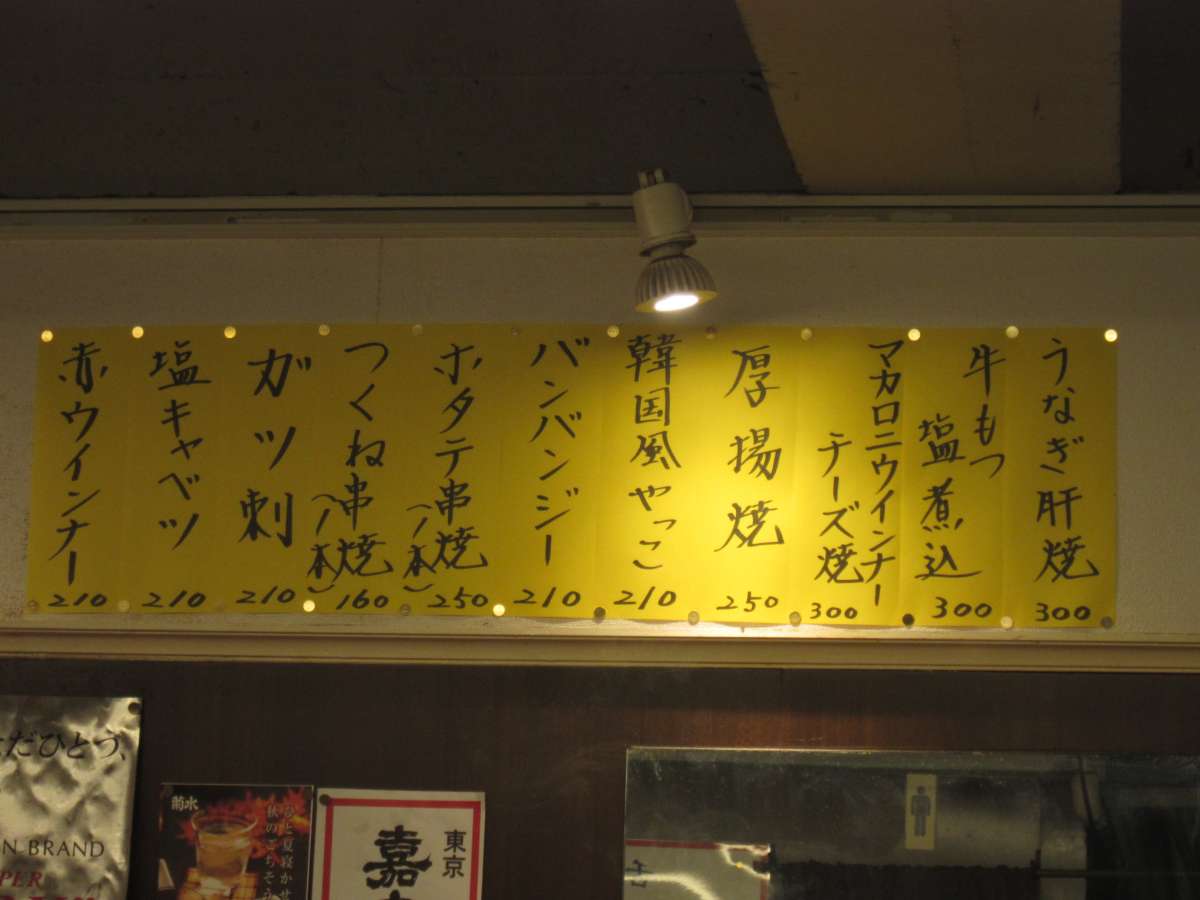 うなぎ肝焼
300
牛もつ
塩煮込
300
マカロニウインナー
チーズ焼
300
厚揚焼
250
韓国風やっこ
210
バンバンジー
210
ホタテ串焼
(1本)
250
つくね串焼
(1本)
160
ガツ刺
210
塩キャベツ
210
赤ウインナー
210
だひとづ、
N BRAND
PER
菊水
ひと夏寝かせ
秋のごちそう
東京
嘉